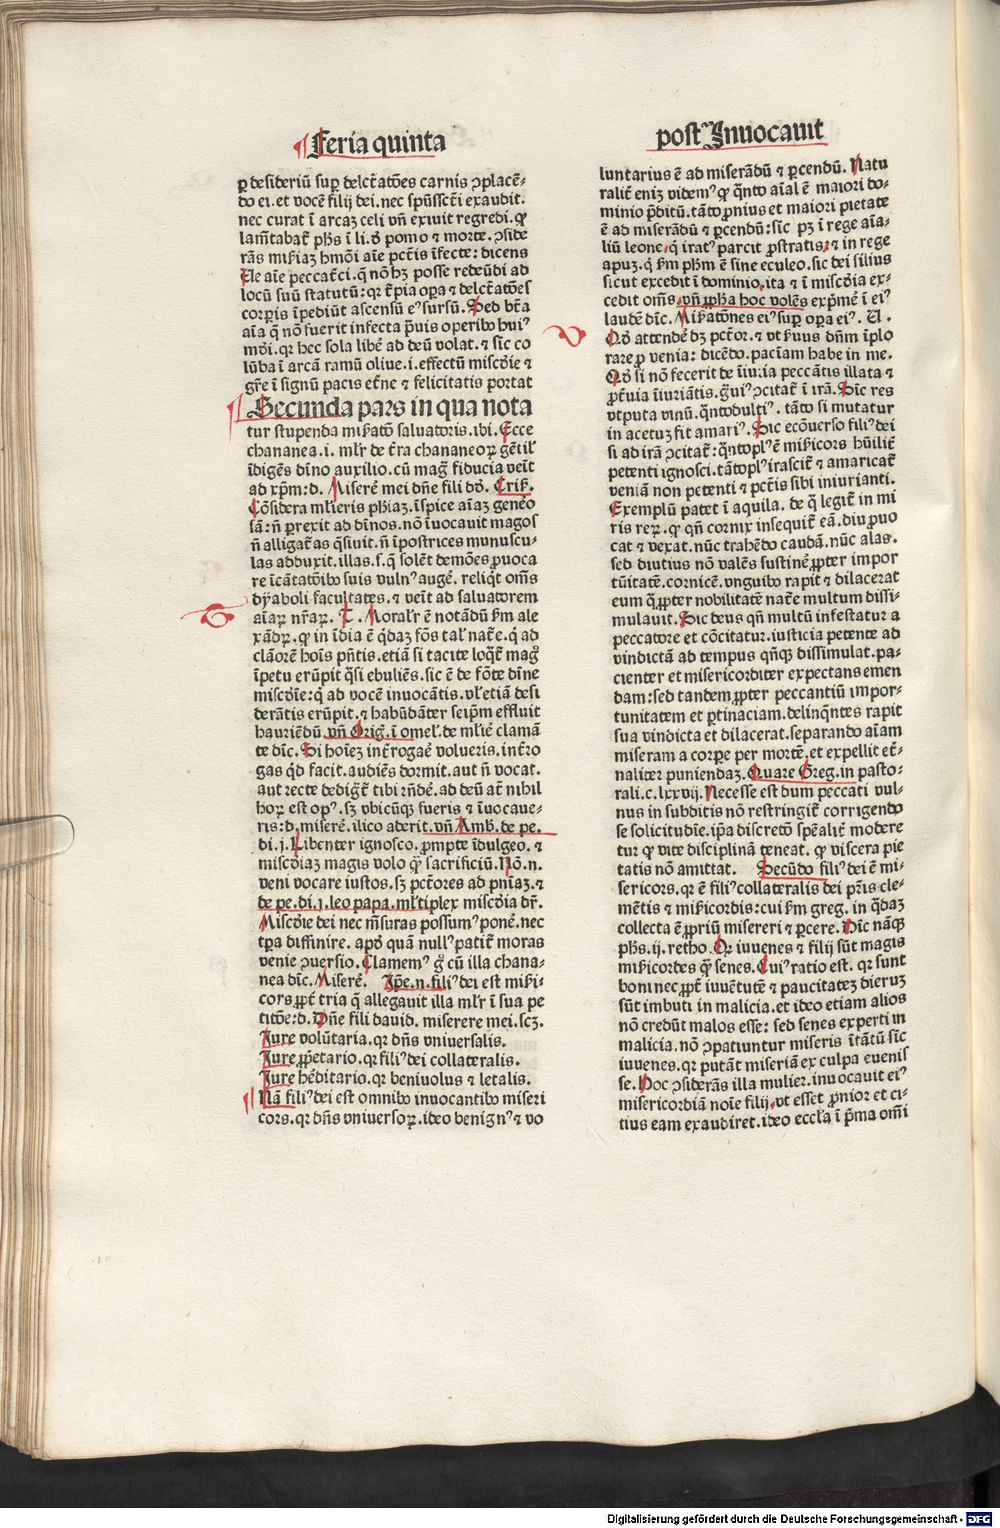 Feria quinta
post Inuocauit
ꝑ desideriū suꝑ delc̄tatōes carnis ꝯplacē-
do ei. et vocē filij dei. nec spūssc̄ti exaudit.
nec curat ī arcaꝫ celi vn̄ exiuit regredi. ꝙ
lam̄tabat᷑ ph̄s ī li. ꝺ pomo ⁊ morte. ꝯside
rās mīkiaꝫ hmōi aīe pctīs īfecte: dicens
Ue aīe peccat᷑ci. q̄ nō hꝫ posse redeūdi ad
locū suū statutū: qꝛ t᷑pia oꝑa ⁊ delc̄tatōes
corꝑis īpediūt ascensū eꝰ sursū. Sed bt̄a
aīa q̄ nō fuerit infecta ꝑuis operibꝰ huiꝰ
mōi. qꝛ hec sola libe᷑ ad deū volat. ⁊ sic co
lūba ī arcā ramū oliue. i. effectū miscōie ⁊
gr̄e ī signū pacis et̄ne ⁊ felicitatis portat
Secunda pars in qua nota
tur stupenda mīkatō saluatoris. ibi. Ecce
chananea. i. ml̄r de t̄ra chananeoꝝ gētil᷑
īdigēs dīno auxilio. cū mag᷑ fiducia veīt
ad xp̄m: d. Miserē mei dn̄e fili dō. Crik̄.
Cōsidera ml̄ieris ph̄iaꝫ. īspice aīaꝫ genēo
sā: n̄ perrexit ad dīnos. nō īuocauit magos
n̄ alligat᷑as q̄siuit. n̄ īpostrices munuscu-
las adduxit. illas. s. q̄ solēt demōes ꝓuoca
re īcātatōibꝰ suis vulnꝰ augē. reliqt̄ om̄s
dyaboli facultates. ⁊ veīt ad saluatorem
aīaꝝ nr̄aꝝ. T. Moral᷑r ē notādū ẜm ale
xādꝝ. ꝙ in īdia ē q̄daꝫ fōs tal᷑ nat̄e. q̄ ad
clāorē hoīs pn̄tis. etiā si tacite loq̄t᷑ mag᷑
īpetu erūpit q̄si ebuliēs. sic ē de fōte dīne
miscōie: q̄ ad vocē inuocātis. vl̄ etiā desi
derātis erūpit. ⁊ habūdāter seip̄m effluit
hauriēdū. vn̄ Orig. ī omel᷑. de ml̄iē clamā
te dīc. Si hoīeꝫ int᷑rogaē volueris. int᷑ro
gas qd̄ facit. audiēs dormit. aut n̄ vocat.
aut recte dedigt᷑ tibi rn̄dē. ad deū at̄ nihil
hoꝝ est opꝰ. sꝫ vbicūqꝫ fueris ⁊ īuocaue-
ris: d. miserē. ilico aderit. vn̄ Amb̄. de pe.
di. j. Libenter ignosco. ꝓmpte īdulgeo. ⁊
miscōiaꝫ magis volo qꝫ̄ sacrificiū. Nō. n.
veni vocare iustos. sꝫ pctōres ad pn̄iaꝫ. ⁊
de pe. di. j. leo papa. ml̄tiplex miscōia dr̄.
Miscōie dei nec m̄suras possumꝰ ponē. nec
tꝑa diffinire. apō quā nullꝰ patit᷑ moras
venie ꝯuersio. Clamemꝰ g̊ cū illa chana-
nea dīc. Miserē. Ipē. n. filiꝰ dei est mīki-
cors ꝓpt᷑ tria q̄ allegauit illa ml̄r ī sua pe
titōe: d. Dn̄e fili dauid. miserere mei. scꝫ.
Iure volūtaria. qꝛ dn̄s vniuersalis.
Iure ꝓpetario. qꝛ filiꝰ dei collateralis.
Iure he᷑ditario. qꝛ beniuolus ⁊ letalis.
Nā filiꝰ dei est omnibꝰ inuocantibꝰ miseri
cors. qꝛ dn̄s vniuersoꝝ. ideo benignꝰ ⁊ vo
luntarius ē ad miserādū ⁊ ꝑcendū. Natu
ralit᷑ eniꝫ videmꝰ ꝙ q̄nto aīal ē maiori do-
minio p̄ditū. tāto ꝓnius et maiori pietate
ē ad miserādū ⁊ ꝑcendū: sic pꝫ ī rege aīa-
liū leone. q̄ iratꝰ parcit ꝓstratis. ⁊ in rege
apuꝫ. q̄ ẜm ph̄m ē sine eculeo. sic dei filius
sicut excedit ī dominio. ita ⁊ ī miscōia ex-
cedit om̄s. vn̄ ꝓph̄a hoc volēs exp̄mē ī eiꝰ
laudē dīc. Mīkatōnes eiꝰ suꝑ oꝑa eiꝰ. V.
Qō attendē dꝫ pctōr. ⁊ vt ẜuus dn̄m īplo
rare ꝓ venia: dicēdo. paciam habe in me.
Qō si nō fecerit de īiuria peccātis illata ⁊
ꝓt᷑uia īiuriātis. g̊uiꝰ ꝯcitat᷑ ī irā. Sic res
vtputa vinū. q̄ntodultiꝰ. tāto si mutatur
in acetuꝫ fit amariꝰ. Sic ecōuerso filiꝰ dei
si ad irā ꝯcitat᷑: q̄ntoplꝰ ē mīkicors hūilit᷑
petenti ignosci. tātoplꝰ irascit᷑ ⁊ amaricat᷑
veniā non petenti ⁊ pctīs sibi iniurianti.
Exemplū patet ī aquila. de q̄ legit᷑ in mi
ris reꝝ. ꝙ qn̄ cornix insequit᷑ eā. diu ꝓuo
cat ⁊ vexat. nūc trahēdo caudā. nūc alas.
sed diutius nō valēs sustinē ꝓpter impor
tūitatē. cornicē. vnguibꝰ rapit ⁊ dilacerat
eum q̄ ꝓpter nobilitatē nat̄e multum dissi-
mulauit. Sic deus qn̄ multū infestatur a
peccatore et cōcitatur. iusticia petente ad
vindictā ad tempus qn̄qꝫ dissimulat. pa-
cienter et misericorditer expectans emen
dam: sed tandem ꝓpter peccantiū impor-
tunitatem et ꝑtinaciam. delinq̄ntes rapit
sua vindicta et dilacerat. separando aīam
miseram a corpe per mortē. et expellit et᷑-
naliter puniendaꝫ. Quare Greg. in pasto-
rali. c. lxxvij. Necesse est dum peccati vul-
nus in subditis nō restringit᷑ corrigendo
se solicitudīe. ip̄a discretō spēalit᷑ modere
tur ꝙ vite disciplinā teneat. ꝙ viscera pie
tatis nō amittat. Secūdo filiꝰ dei ē mi-
sericors. qꝛ ē filiꝰ collateralis dei pr̄is cle-
mētis ⁊ mīkicordis: cui ẜm greg. in q̄daꝫ
collecta ē ꝓpriū misereri ⁊ ꝑcere. Sic nāqꝫ
ph̄s. ij. retho. Qꝛ iuuenes ⁊ filij sūt magis
mīkicordes qꝫ̄ senes. Cuiꝰ ratio est. qꝛ sunt
boni nec ꝓpt᷑ iuuētutē ⁊ paucitateꝫ dieruꝫ
sūt imbuti in malicia. et ideo etiam alios
nō credūt malos esse: sed senes experti in
malicia. nō ꝯpatiuntur miseris ītātū sic
iuuenes. qꝛ putāt miseriā ex culpa euenis
se. Hoc ꝯsiderās illa mulier. inuocauit eiꝰ
misericordiā noīe filij. vt esset ꝓnior et ci-
tius eam exaudiret. ideo eccl̄a ī p̄ma om̄i
T
V
Digitalisierung gefördert durch die Deutsche Forschungsgemeinschaft - DFG